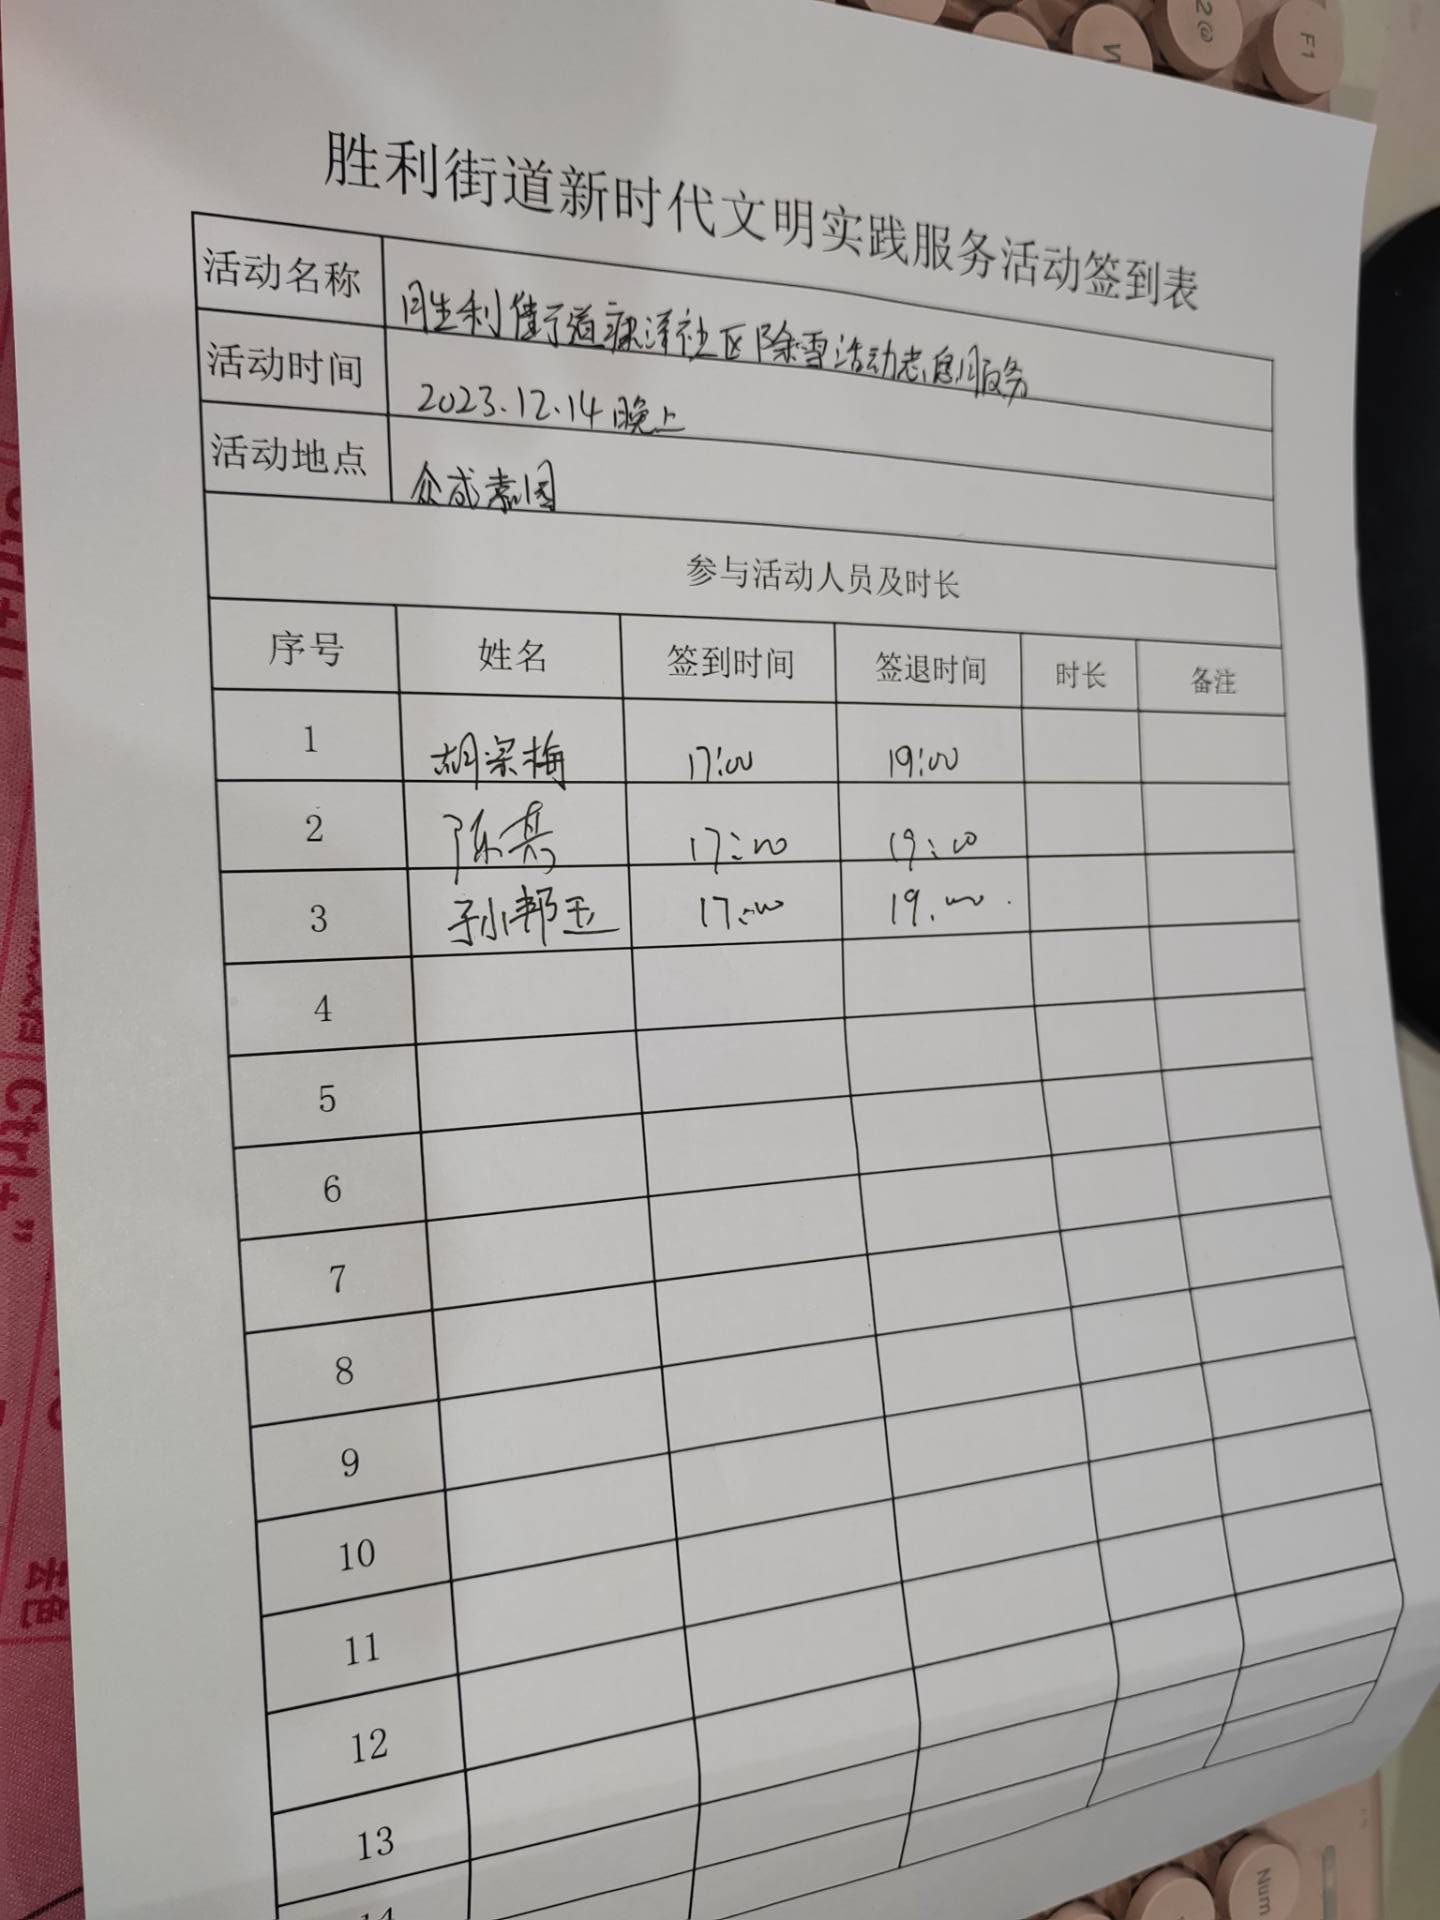 2@
F1
胜利街道新时代文明实践服务活动签到表
活动名称 胜利街道康泽社区除雪活动志愿服务
活动时间 2023.12.14晚上
活动地点 众成嘉园
参与活动人员及时长
序号 姓名 签到时间 签退时间 时长 备注
1 胡宗梅 17:00 19:00
2 陈真 17:00 19:00
3 孙邦玉 17:00 19:00
4
5
6
7
8
9
10
11
12
13
14
Ctrl+U
Ctrl+"
去色
Num